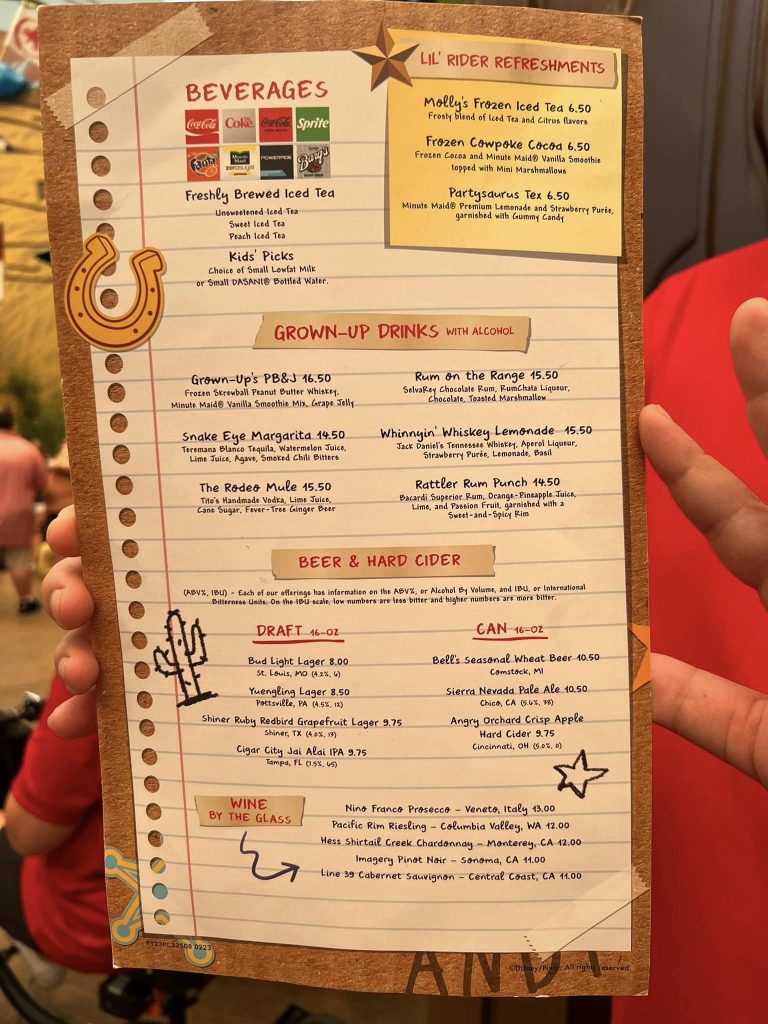 BEVERAGES
Coca-Cola
Diet
Coke
Coca-Cola
Sprite
Fanta
Minute Maid
zero sugar
POWERADE
Barq's
Freshly Brewed Iced Tea
Unsweetened Iced Tea
Sweet Iced Tea
Peach Iced Tea
Kids' Picks
Choice of Small Lowfat Milk
or Small DASANI® Bottled Water.
LIL' RIDER REFRESHMENTS
Molly's Frozen Iced Tea 6.50
Frosty blend of Iced Tea and Citrus flavors
Frozen Cowpoke Cocoa 6.50
Frozen Cocoa and Minute Maid® Vanilla Smoothie
topped with Mini Marshmallows
Partysaurus Tex 6.50
Minute Maid® Premium Lemonade and Strawberry Purée,
garnished with Gummy Candy
GROWN-UP DRINKS WITH ALCOHOL
Grown-Up's PB&J 16.50
Frozen Skrewball Peanut Butter Whiskey,
Minute Maid® Vanilla Smoothie Mix, Grape Jelly
Snake Eye Margarita 14.50
Teremana Blanco Tequila, Watermelon Juice,
Lime Juice, Agave, Smoked Chili Bitters
The Rodeo Mule 15.50
Tito's Handmade Vodka, Lime Juice,
Cane Sugar, Fever-Tree Ginger Beer
Rum on the Range 15.50
SelvaRey Chocolate Rum, RumChata Liqueur,
Chocolate, Toasted Marshmallow
Whinnyin' Whiskey Lemonade 15.50
Jack Daniel's Tennessee Whiskey, Aperol Liqueur,
Strawberry Purée, Lemonade, Basil
Rattler Rum Punch 14.50
Bacardi Superior Rum, Orange-Pineapple Juice,
Lime, and Passion Fruit, garnished with a
Sweet-and-Spicy Rim
BEER & HARD CIDER
(ABV%, IBU) - Each of our offerings has information on the ABV%, or Alcohol By Volume, and IBU, or International
Bitterness Units. On the IBU scale, low numbers are less bitter and higher numbers are more bitter.
DRAFT 16-OZ
Bud Light Lager 8.00
St. Louis, MO (4.2%, 6)
Yuengling Lager 8.50
Pottsville, PA (4.5%, 12)
Shiner Ruby Redbird Grapefruit Lager 9.75
Shiner, TX (4.0%, 13)
Cigar City Jai Alai IPA 9.75
Tampa, FL (7.5%, 65)
CAN 16-OZ
Bell's Seasonal Wheat Beer 10.50
Comstock, MI
Sierra Nevada Pale Ale 10.50
Chico, CA (5.6%, 38)
Angry Orchard Crisp Apple
Hard Cider 9.75
Cincinnati, OH (5.0%, 0)
WINE
BY THE GLASS
Nino Franco Prosecco – Veneto, Italy 13.00
Pacific Rim Riesling – Columbia Valley, WA 12.00
Hess Shirtail Creek Chardonnay – Monterey, CA 12.00
Imagery Pinot Noir – Sonoma, CA 11.00
Line 39 Cabernet Sauvignon – Central Coast, CA 11.00
FY23PC33508 0223
ANDY
©Disney/Pixar. All rights reserved